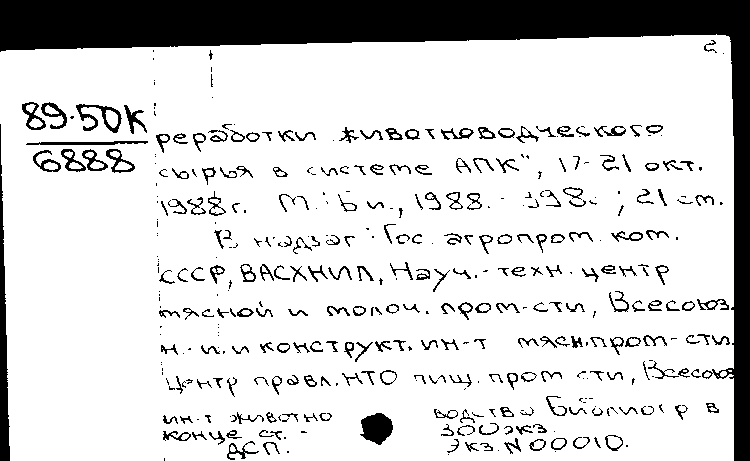 2.
89-50К
6888
реработки животноводческого
сырья в системе АПК", 17-21 окт.
1988г. М.: Б и., 1988.- 398с ; 21 см.
В надзаг : Гос. агропром. ком.
СССР, ВАСХНИЛ, Науч.-техн. центр
мясной и молоч. пром-сти, Всесоюз.
н.-и. и конструкт. ин-т мясн. пром-сти.
Центр правл. НТО пищ. пром сти, Всесоюз
ин-т животно водства Библиогр в
конце ст. - 300 экз.
ДСП. Экз. N 00010.